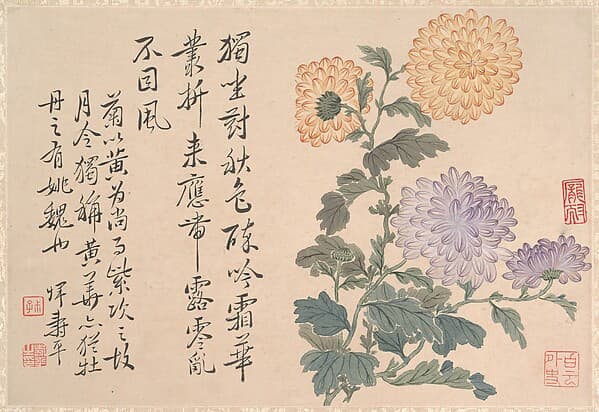 獨坐對秋色醉吟霜華
叢折來應帶露零亂
不因風
菊以黃為尚而紫次之故
月令獨稱黃華亦猶牡
丹之有姚魏也 惲壽平
白雲外史